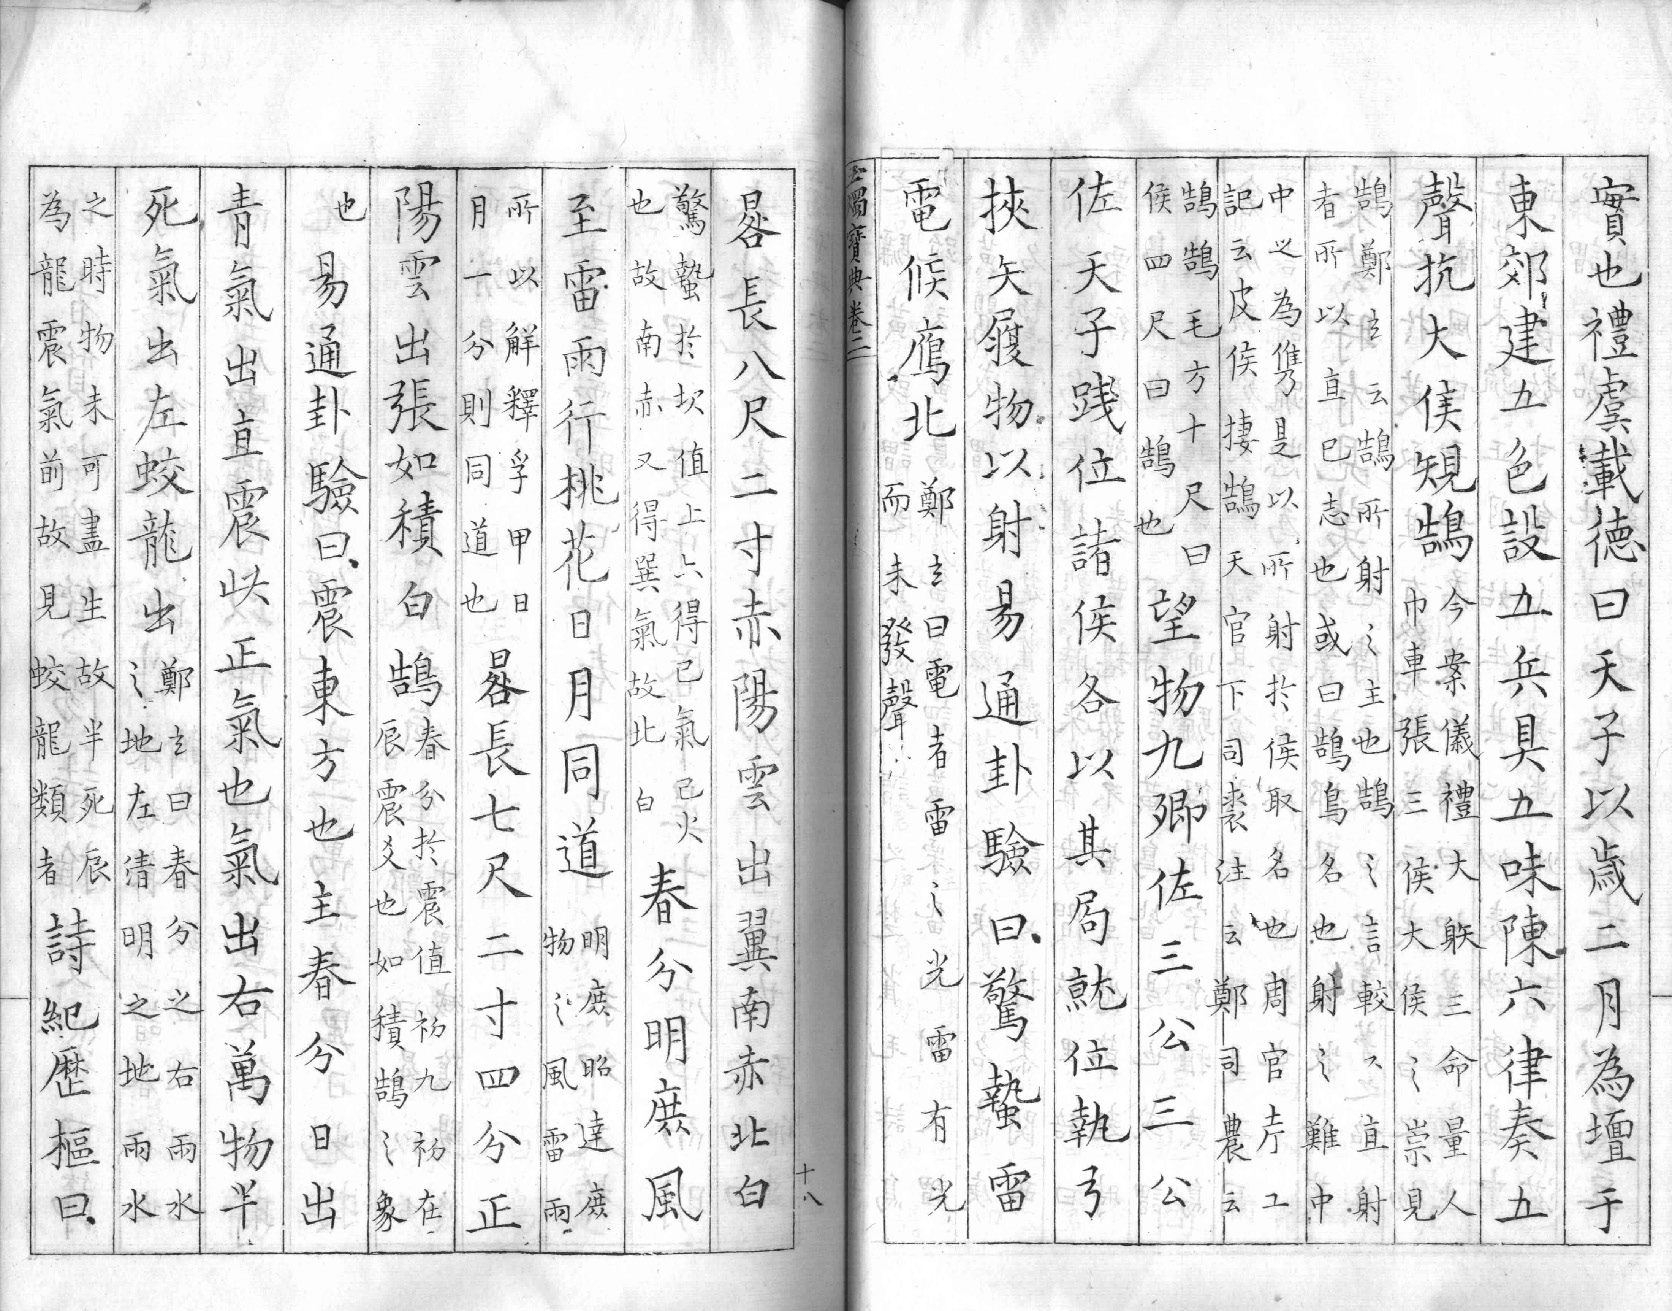 實也禮虞載德曰天子以歲二月為壇于
東郊建五色設五兵具五味陳六律奏五
聲抗大侯規鵠今案儀禮大躾三命量人
巾車張三侯大侯之崇見
鵠鄭玄云鵠所射之主也鵠之言較々直射
者所以直己志也或曰鵠鳥名也射之難中
中之為雋是以所射於侯取名也周官庁工
記云皮侯捿鵠天官下司裘注云鄭司農云
鵠鵠毛方十尺曰
侯四尺曰鵠也
望物九卿佐三公三公
佐天子践位諸侯各以其局就位執弓
挾矢履物以射易通卦驗曰驚蟄雷
電候鴈北鄭玄曰電者雷之光雷有光
而未發聲
玉燭寶典卷二
十八
晷長八尺二寸赤陽雲出翼南赤北白
驚蟄於坎值上六得己氣己火
也故南赤又得巽氣故北白
春分明庶風
至雷雨行桃花日月同道明庶昭達庶
物之風雷雨
所以解釋孚甲日
月一分則同道也
晷長七尺二寸四分正
陽雲出張如積白鵠春分於震值初九初在
辰震爻也如積鵠之象
也易通卦驗曰震東方也主春分日出
青氣出直震此正氣也氣出右萬物半
死氣出左蛟龍出鄭玄曰春分之右雨水
之地左清明之地雨水
之時物未可盡生故半死辰
為龍震氣前故見蛟龍類者
詩紀歷樞曰